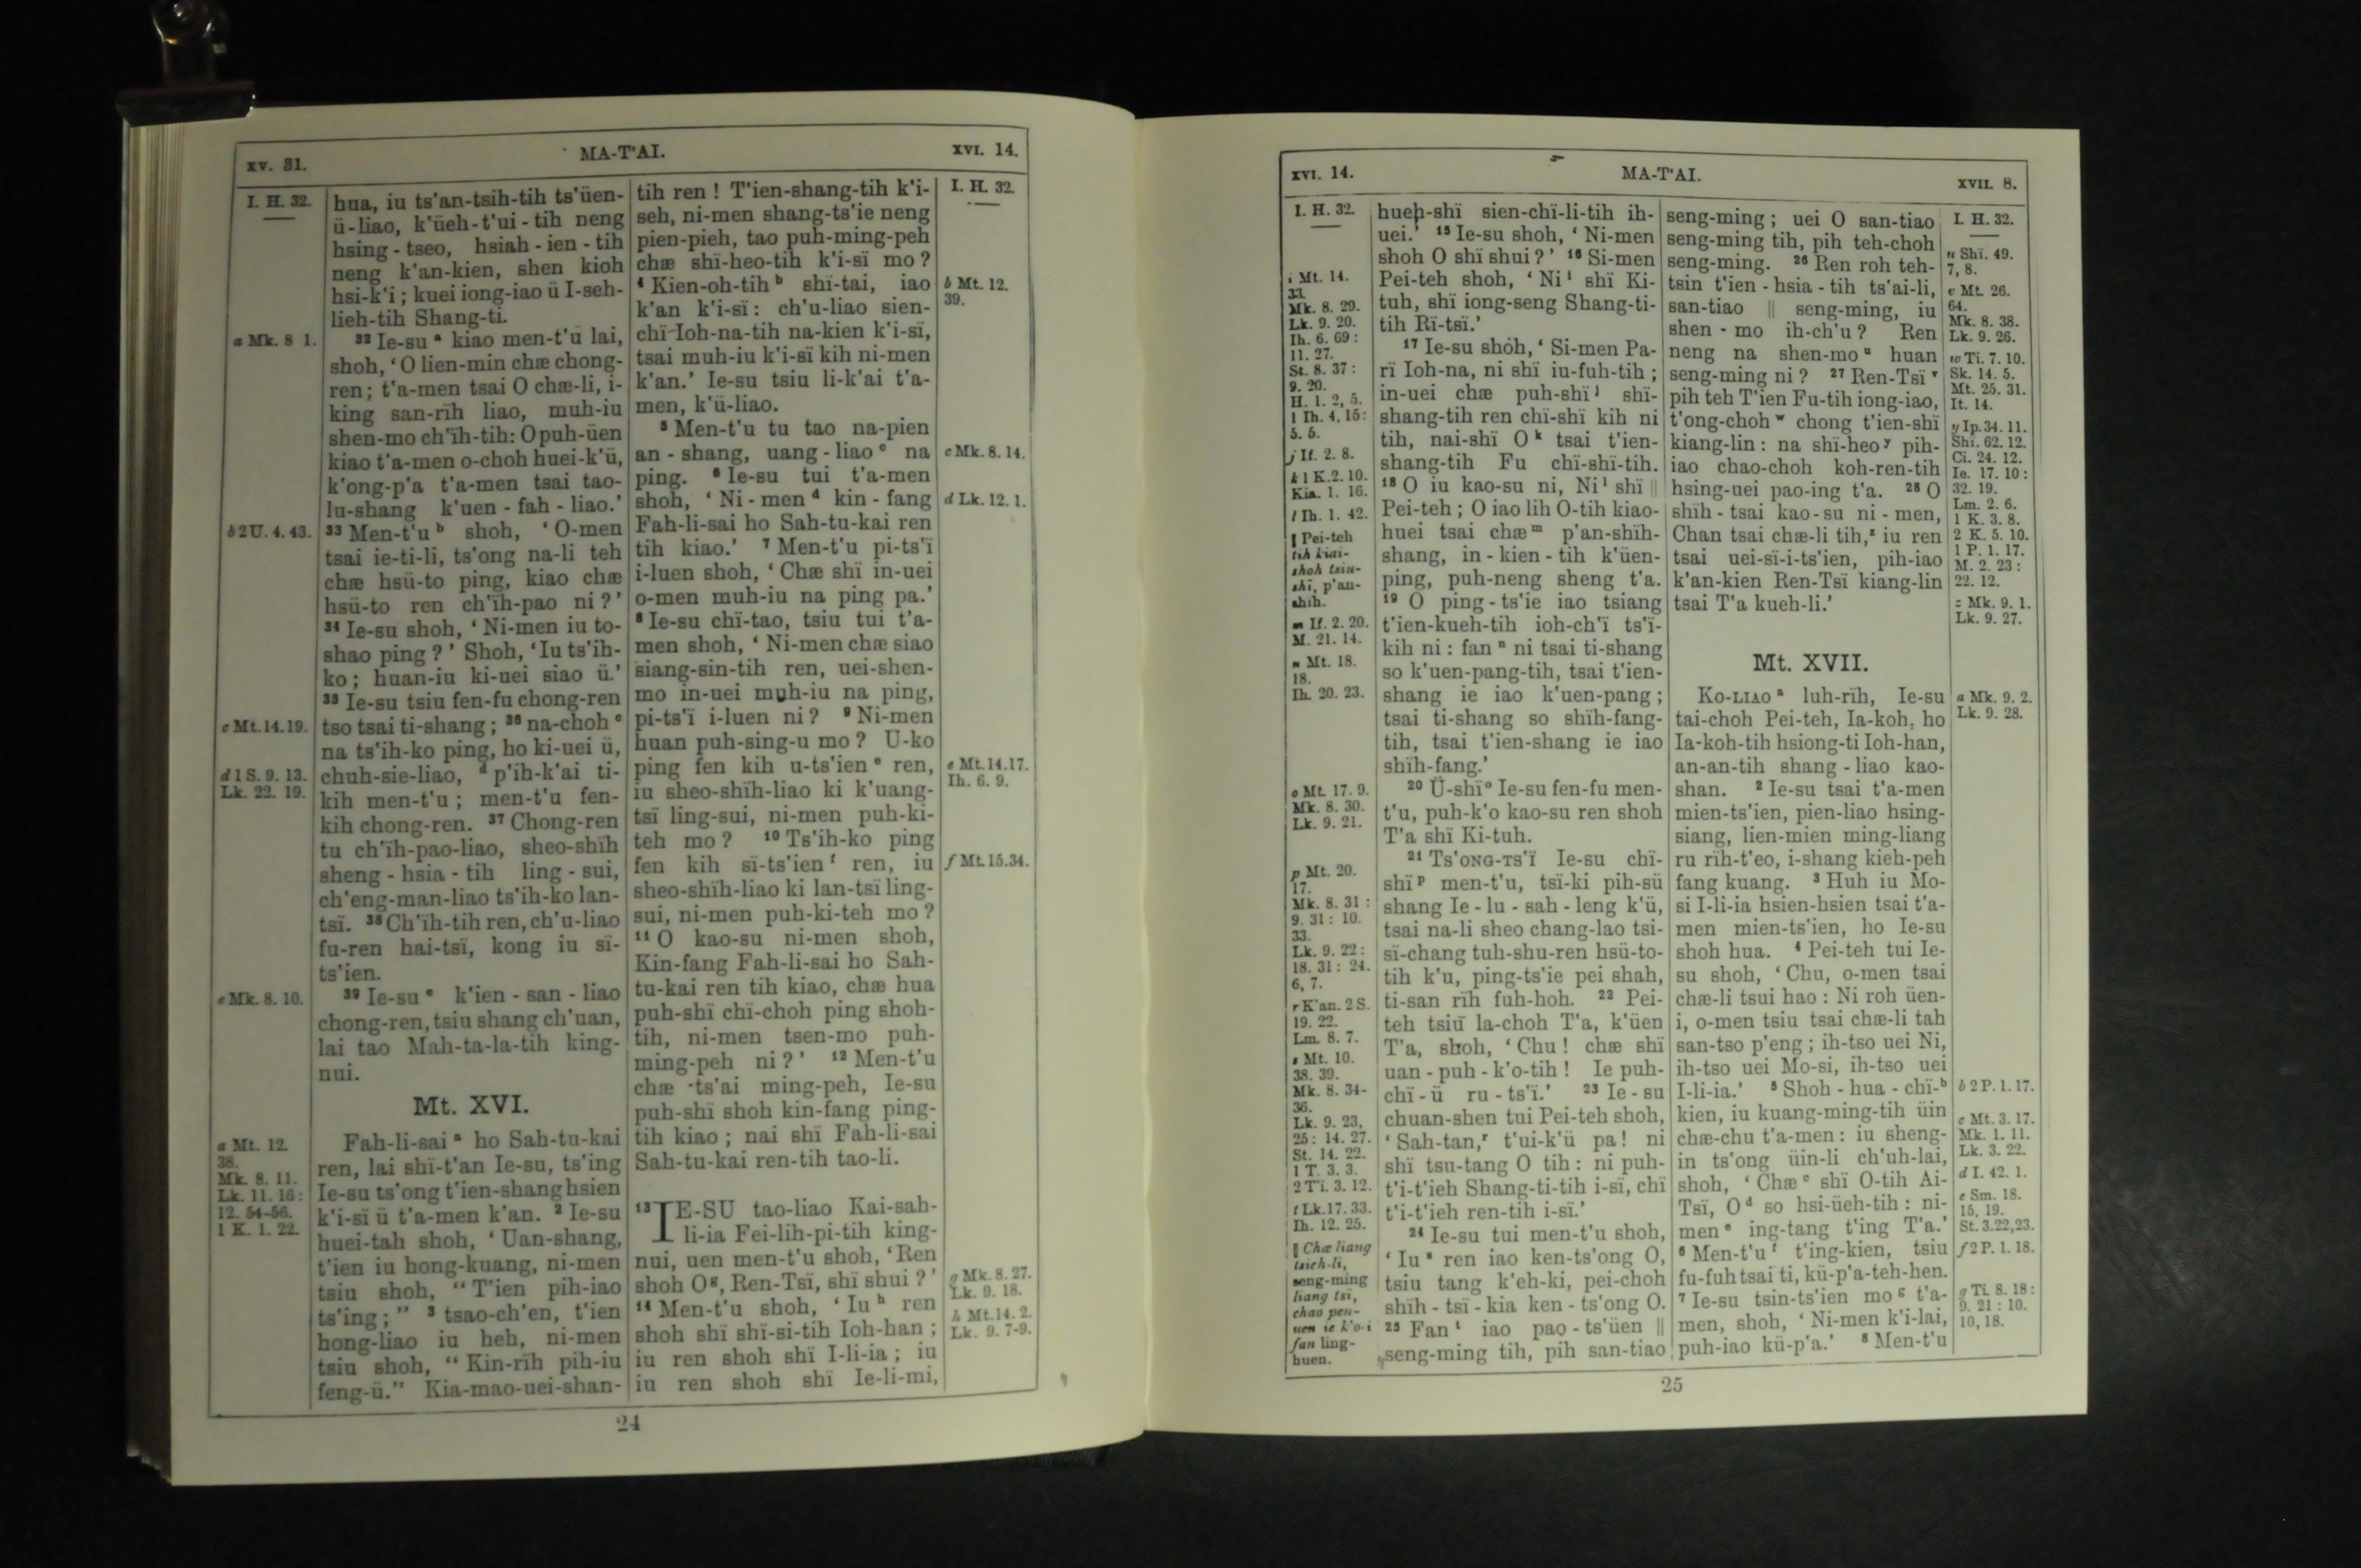 xv. 31.
MA-T'AI.
xvi. 14.
I. H. 32.
a Mk. 8 1.
b 2 U. 4. 43.
c Mt. 14. 19.
d 1 S. 9. 13.
Lk. 22. 19.
e Mk. 8. 10.
a Mt. 12.
38.
Mk. 8. 11.
Lk. 11. 16:
12. 54-56.
1 K. 1. 22.
hua, iu ts'an-tsih-tih ts'üen-
ü-liao, k'üeh-t'ui-tih neng
hsing-tseo, hsiah-ien-tih
neng k'an-kien, shen kioh
hsi-k'i; kuei iong-iao ü I-seh-
lieh-tih Shang-ti.
32 Ie-su a kiao men-t'u lai,
shoh, 'O lien-min chæ chong-
ren; t'a-men tsai O chæ-li, i-
king san-rïh liao, muh-iu
shen-mo ch'ïh-tih: O puh-üen
kiao t'a-men o-choh huei-k'ü,
k'ong-p'a t'a-men tsai tao-
lu-shang k'uen-fah-liao.'
33 Men-t'u b shoh, 'O-men
tsai ie-ti-li, ts'ong na-li teh
chæ hsü-to ping, kiao chæ
hsü-to ren ch'ïh-pao ni?'
34 Ie-su shoh, 'Ni-men iu to-
shao ping?' Shoh, 'Iu ts'ih-
ko; huan-iu ki-uei siao ü.'
35 Ie-su tsiu fen-fu chong-ren
tso tsai ti-shang; 36 na-choh c
na ts'ih-ko ping, ho ki-uei ü,
chuh-sie-liao, d p'ih-k'ai ti-
kih men-t'u; men-t'u fen-
kih chong-ren. 37 Chong-ren
tu ch'ïh-pao-liao, sheo-shïh
sheng-hsia-tih ling-sui,
ch'eng-man-liao ts'ih-ko lan-
tsï. 38 Ch'ïh-tih ren, ch'u-liao
fu-ren hai-tsï, kong iu sï-
ts'ien.
39 Ie-su e k'ien-san-liao
chong-ren, tsiu shang ch'uan,
lai tao Mah-ta-la-tih king-
nui.
Mt. XVI.
Fah-li-sai a ho Sah-tu-kai
ren, lai shï-t'an Ie-su, ts'ing
Ie-su ts'ong t'ien-shang hsien
k'i-sï ü t'a-men k'an. 2 Ie-su
huei-tah shoh, 'Uan-shang,
t'ien iu hong-kuang, ni-men
tsiu shoh, "T'ien pih-iao
ts'ing;" 3 tsao-ch'en, t'ien
hong-liao iu heh, ni-men
tsiu shoh, "Kin-rïh pih-iu
feng-ü." Kia-mao-uei-shan-
tih ren! T'ien-shang-tih k'i-
seh, ni-men shang-ts'ie neng
pien-pieh, tao puh-ming-peh
chæ shï-heo-tih k'i-sï mo?
4 Kien-oh-tih b shï-tai, iao
k'an k'i-sï: ch'u-liao sien-
chï Ioh-na-tih na-kien k'i-sï,
tsai muh-iu k'i-sï kih ni-men
k'an.' Ie-su tsiu li-k'ai t'a-
men, k'ü-liao.
5 Men-t'u tu tao na-pien
an-shang, uang-liao c na
ping. 6 Ie-su tui t'a-men
shoh, 'Ni-men d kin-fang
Fah-li-sai ho Sah-tu-kai ren
tih kiao.' 7 Men-t'u pi-ts'ï
i-luen shoh, 'Chæ shï in-uei
o-men muh-iu na ping pa.'
8 Ie-su chï-tao, tsiu tui t'a-
men shoh, 'Ni-men chæ siao
siang-sin-tih ren, uei-shen-
mo in-uei muh-iu na ping,
pi-ts'ï i-luen ni? 9 Ni-men
huan puh-sing-u mo? U-ko
ping fen kih u-ts'ien e ren,
iu sheo-shïh-liao ki k'uang-
tsï ling-sui, ni-men puh-ki-
teh mo? 10 Ts'ih-ko ping
fen kih sï-ts'ien f ren, iu
sheo-shïh-liao ki lan-tsï ling-
sui, ni-men puh-ki-teh mo?
11 O kao-su ni-men shoh,
Kin-fang Fah-li-sai ho Sah-
tu-kai ren tih kiao, chæ hua
puh-shï chï-choh ping shoh-
tih, ni-men tsen-mo puh-
ming-peh ni?' 12 Men-t'u
chæ ts'ai ming-peh, Ie-su
puh-shï shoh kin-fang ping-
tih kiao; nai shï Fah-li-sai
Sah-tu-kai ren-tih tao-li.
13 IE-SU tao-liao Kai-sah-
li-ia Fei-lih-pi-tih king-
nui, uen men-t'u shoh, 'Ren
shoh O g, Ren-Tsï, shï shui?'
14 Men-t'u shoh, 'Iu h ren
shoh shï shï-si-tih Ioh-han;
iu ren shoh shï I-li-ia; iu
iu ren shoh shï Ie-li-mi,
I. H. 32.
b Mt. 12.
39.
c Mk. 8. 14.
d Lk. 12. 1.
e Mt. 14. 17.
Ih. 6. 9.
f Mt. 15. 34.
g Mk. 8. 27.
Lk. 9. 18.
h Mt. 14. 2.
Lk. 9. 7-9.
24
xvi. 14.
MA-T'AI.
xvii. 8.
I. H. 32.
i Mt. 14.
33.
Mk. 8. 29.
Lk. 9. 20.
Ih. 6. 69:
11. 27.
St. 8. 37:
9. 20.
H. 1. 2, 5.
1 Ih. 4. 15:
5. 5.
j If. 2. 8.
k 1 K. 2. 10.
Kia. 1. 16.
l Ih. 1. 42.
‖ Pei-teh
tih kiai-
shoh tsiu-
shï, p'an-
shïh.
m If. 2. 20.
M. 21. 14.
n Mt. 18.
18.
Ih. 20. 23.
o Mt. 17. 9.
Mk. 8. 30.
Lk. 9. 21.
p Mt. 20.
17.
Mk. 8. 31:
9. 31: 10.
33.
Lk. 9. 22:
18. 31: 24.
6, 7.
r K'an. 2 S.
19. 22.
Lm. 8. 7.
s Mt. 10.
38. 39.
Mk. 8. 34-
36.
Lk. 9. 23,
25: 14. 27.
St. 14. 22.
1 T. 3. 3.
2 Ti. 3. 12.
t Lk. 17. 33.
Ih. 12. 25.
‖ Chæ liang
tsieh-li,
seng-ming
liang tsï,
chao pen-
uen ie k'o-i
fan ling-
huen.
hueh-shï sien-chï-li-tih ih-
uei.' 15 Ie-su shoh, 'Ni-men
shoh O shï shui?' 16 Si-men
Pei-teh shoh, 'Ni i shï Ki-
tuh, shï iong-seng Shang-ti-
tih Rï-tsï.'
17 Ie-su shoh, 'Si-men Pa-
rï Ioh-na, ni shï iu-fuh-tih;
in-uei chæ puh-shï j shï-
shang-tih ren chï-shï kih ni
tih, nai-shï O k tsai t'ien-
shang-tih Fu chï-shï-tih.
18 O iu kao-su ni, Ni l shï ‖
Pei-teh; O iao lih O-tih kiao-
huei tsai chæ m p'an-shïh-
shang, in-kien-tih k'üen-
ping, puh-neng sheng t'a.
19 O ping-ts'ie iao tsiang
t'ien-kueh-tih ioh-ch'ï ts'ï-
kih ni: fan n ni tsai ti-shang
so k'uen-pang-tih, tsai t'ien-
shang ie iao k'uen-pang;
tsai ti-shang so shïh-fang-
tih, tsai t'ien-shang ie iao
shïh-fang.'
20 Ü-shï o Ie-su fen-fu men-
t'u, puh-k'o kao-su ren shoh
T'a shï Ki-tuh.
21 Ts'ong-ts'ï Ie-su chï-
shï p men-t'u, tsï-ki pih-sü
shang Ie-lu-sah-leng k'ü,
tsai na-li sheo chang-lao tsi-
sï-chang tuh-shu-ren hsü-to-
tih k'u, ping-ts'ie pei shah,
ti-san rïh fuh-hoh. 22 Pei-
teh tsiu la-choh T'a, k'üen
T'a, shoh, 'Chu! chæ shï
uan-puh-k'o-tih! Ie puh-
chï-ü ru-ts'ï.' 23 Ie-su
chuan-shen tui Pei-teh shoh,
'Sah-tan, r t'ui-k'ü pa! ni
shï tsu-tang O tih: ni puh-
t'i-t'ieh Shang-ti-tih i-sï, chï
t'i-t'ieh ren-tih i-sï.'
24 Ie-su tui men-t'u shoh,
'Iu s ren iao ken-ts'ong O,
tsiu tang k'eh-ki, pei-choh
shïh-tsï-kia ken-ts'ong O.
25 Fan t iao pao-ts'üen ‖
seng-ming tih, pih san-tiao
seng-ming; uei O san-tiao
seng-ming tih, pih teh-choh
seng-ming. 26 Ren roh teh-
tsin t'ien-hsia-tih ts'ai-li,
san-tiao ‖ seng-ming, iu
shen-mo ih-ch'u? Ren
neng na shen-mo u huan
seng-ming ni? 27 Ren-Tsï v
pih teh T'ien Fu-tih iong-iao,
t'ong-choh w chong t'ien-shï
kiang-lin: na shï-heo y pih-
iao chao-choh koh-ren-tih
hsing-uei pao-ing t'a. 28 O
shïh-tsai kao-su ni-men,
Chan tsai chæ-li tih, z iu ren
tsai uei-sï-i-ts'ien, pih-iao
k'an-kien Ren-Tsï kiang-lin
tsai T'a kueh-li.'
Mt. XVII.
Ko-liao a luh-rïh, Ie-su
tai-choh Pei-teh, Ia-koh, ho
Ia-koh-tih hsiong-ti Ioh-han,
an-an-tih shang-liao kao-
shan. 2 Ie-su tsai t'a-men
mien-ts'ien, pien-liao hsing-
siang, lien-mien ming-liang
ru rïh-t'eo, i-shang kieh-peh
fang kuang. 3 Huh iu Mo-
si I-li-ia hsien-hsien tsai t'a-
men mien-ts'ien, ho Ie-su
shoh hua. 4 Pei-teh tui Ie-
su shoh, 'Chu, o-men tsai
chæ-li tsui hao: Ni roh üen-
i, o-men tsiu tsai chæ-li tah
san-tso p'eng; ih-tso uei Ni,
ih-tso uei Mo-si, ih-tso uei
I-li-ia.' 5 Shoh-hua-chï- b
kien, iu kuang-ming-tih üin
chæ-chu t'a-men: iu sheng-
in ts'ong üin-li ch'uh-lai,
shoh, 'Chæ c shï O-tih Ai-
Tsï, O d so hsi-üeh-tih: ni-
men e ing-tang t'ing T'a.'
6 Men-t'u f t'ing-kien, tsiu
fu-fuh tsai ti, kü-p'a-teh-hen.
7 Ie-su tsin-ts'ien mo g t'a-
men, shoh, 'Ni-men k'i-lai,
puh-iao kü-p'a.' 8 Men-t'u
I. H. 32.
u Shï. 49.
7, 8.
v Mt. 26.
64.
Mk. 8. 38.
Lk. 9. 26.
w Ti. 7. 10.
Sk. 14. 5.
Mt. 25. 31.
It. 14.
y Ip. 34. 11.
Shï. 62. 12.
Ci. 24. 12.
Ie. 17. 10:
32. 19.
Lm. 2. 6.
1 K. 3. 8.
2 K. 5. 10.
1 P. 1. 17.
M. 2. 23:
22. 12.
z Mk. 9. 1.
Lk. 9. 27.
a Mk. 9. 2.
Lk. 9. 28.
b 2 P. 1. 17.
c Mt. 3. 17.
Mk. 1. 11.
Lk. 3. 22.
d I. 42. 1.
e Sm. 18.
15, 19.
St. 3. 22, 23.
f 2 P. 1. 18.
g Ti. 8. 18:
9. 21: 10.
10, 18.
25